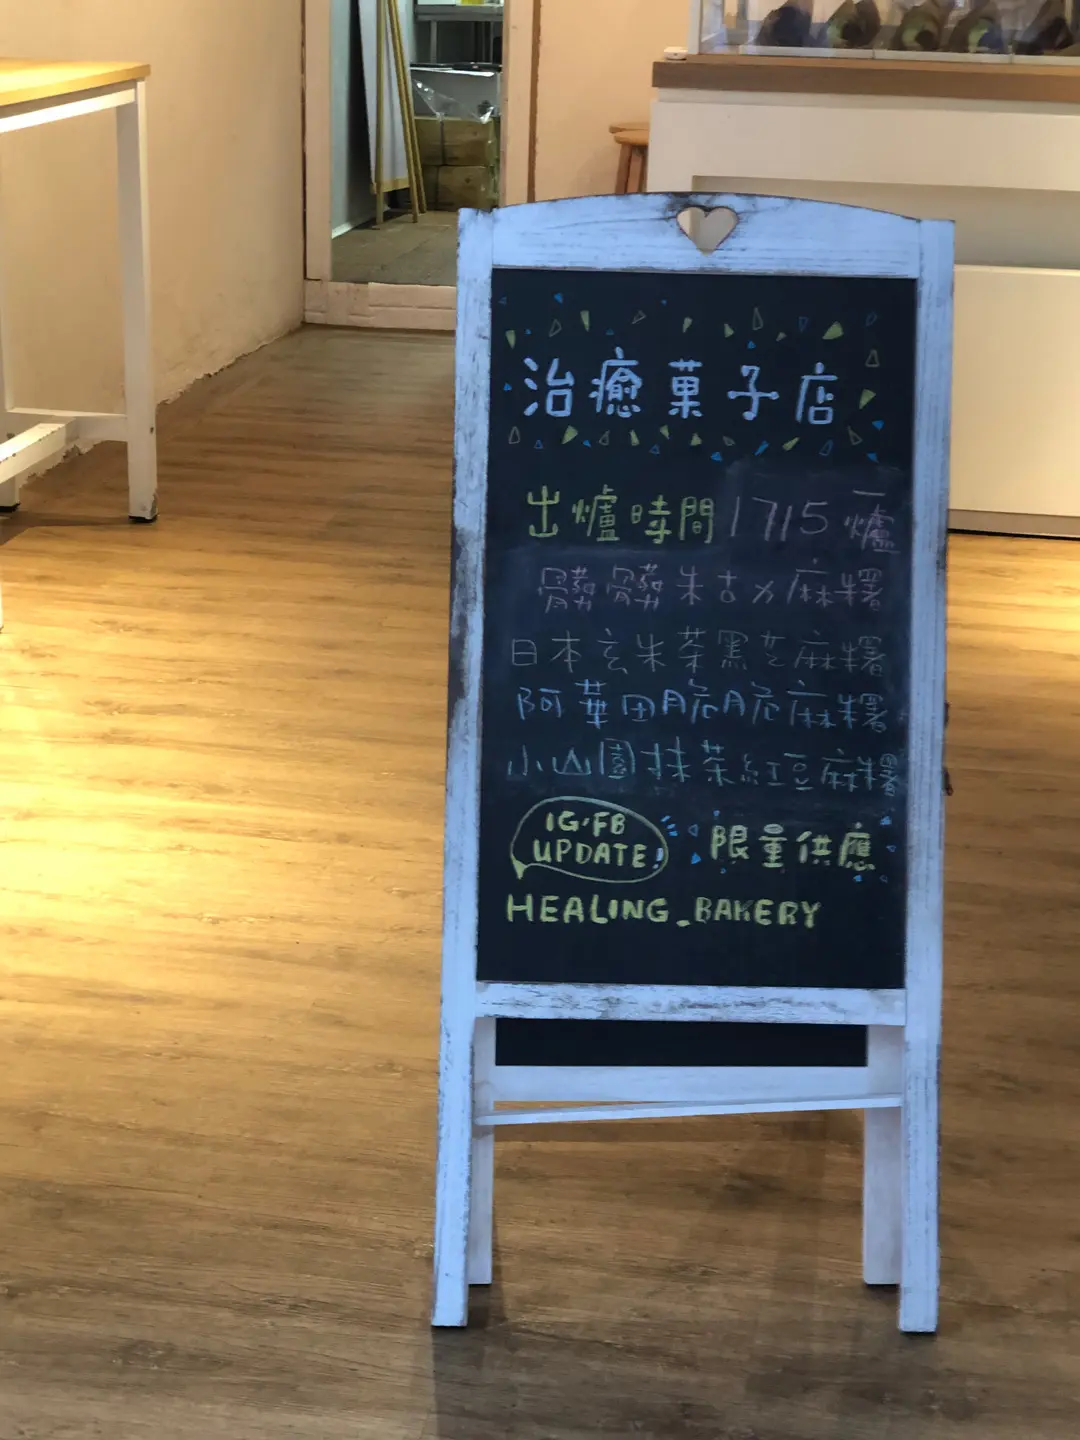 治癒菓子店
出爐時間1715一爐
髒髒朱古力麻糬
日本玄米茶黑芝麻糬
阿華田脆脆麻糬
小山園抹茶紅豆麻糬
IG.FB
UPDATE!
限量供應
HEALING_BAKERY